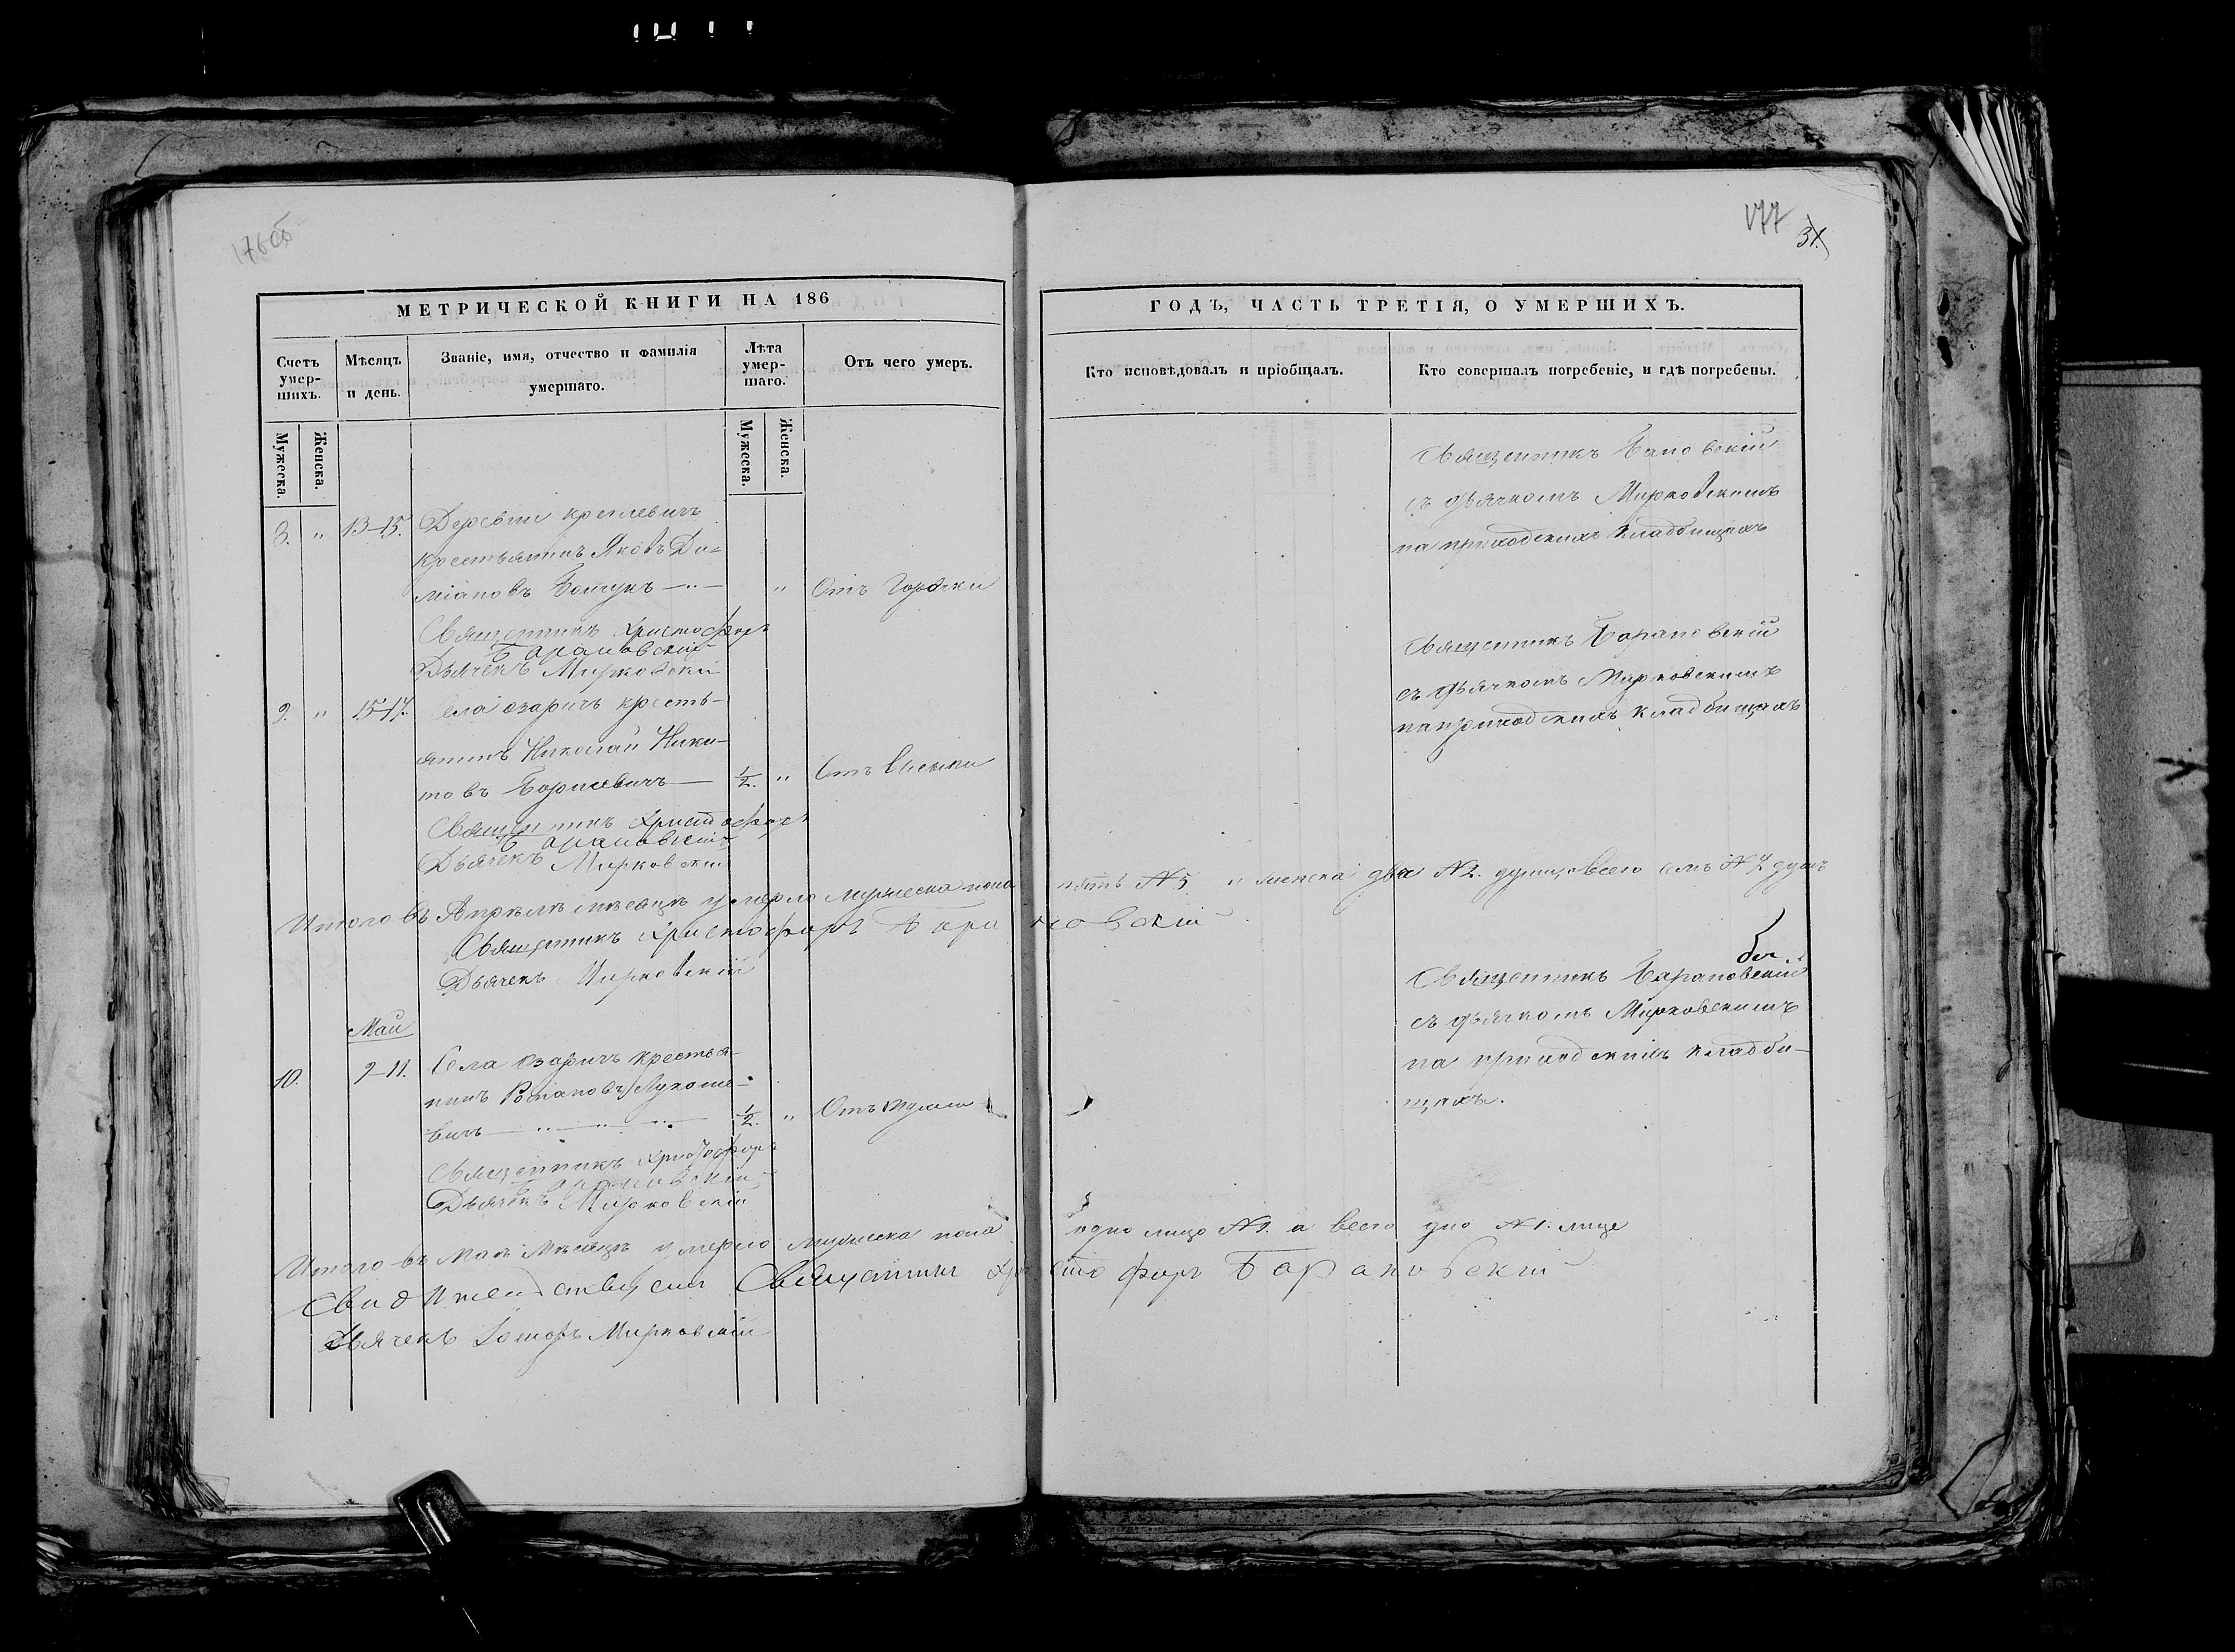 176об
177
31.
МЕТРИЧЕСКОЙ КНИГИ НА 186
Счетъ умер-шихъ.
Мѣсяцъ и день.
Званіе, имя, отчество и фамилія умершаго.
Лѣта умер-шаго.
Отъ чего умеръ.
Мужеска.
Женска.
Мужеска.
Женска.
8. " 13-15. Деревни
крестьянинъ Яковъ Да-
міановъ —"— " Отъ Горячки
Священникъ Христофоръ
Барановскій
Дьячекъ Мирковскій
9. " 15-17. Села озаричъ кресть-
янинъ Николай Ники-
товъ Борисевичъ — 1/2. " Отъ
Священникъ Христофоръ
Барановскій
Дьячекъ Мирковскій
Итого въ Апрѣлѣ мѣсяцѣ умерло мужеска пола пять №5 и женска два №2. души, а всего семь №7 душъ
Священникъ Христофоръ Барановскій
Дьячекъ Мирковскій
Май
10. 9-11. Села озаричъ крестья-
нинъ Романовъ Лукаше-
вичъ — " — " — " — 1/2. " Отъ
Священникъ Христофоръ
Барановскій
Дьячекъ Мирковскій
Итого въ Маѣ мѣсяцѣ умерло мужеска пола одно лице №1. а всего дно №1. лице
Священникъ Христофоръ Барановскій
Дьячекъ Мирковскій
ГОДЪ, ЧАСТЬ ТРЕТІЯ, О УМЕРШИХЪ.
Кто исповѣдовалъ и пріобщалъ.
Кто совершалъ погребеніе, и гдѣ погребены.
Священникъ Бановскій
съ дьячкомъ Мирковскимъ
на приходскихъ кладбищахъ
Священникъ Барановскій
съ дьячкомъ Мирковскимъ
на приходскихъ кладбищахъ
Священникъ Барановскій
съ дьячкомъ Мирковскимъ
на приходскихъ кладби-
щахъ.